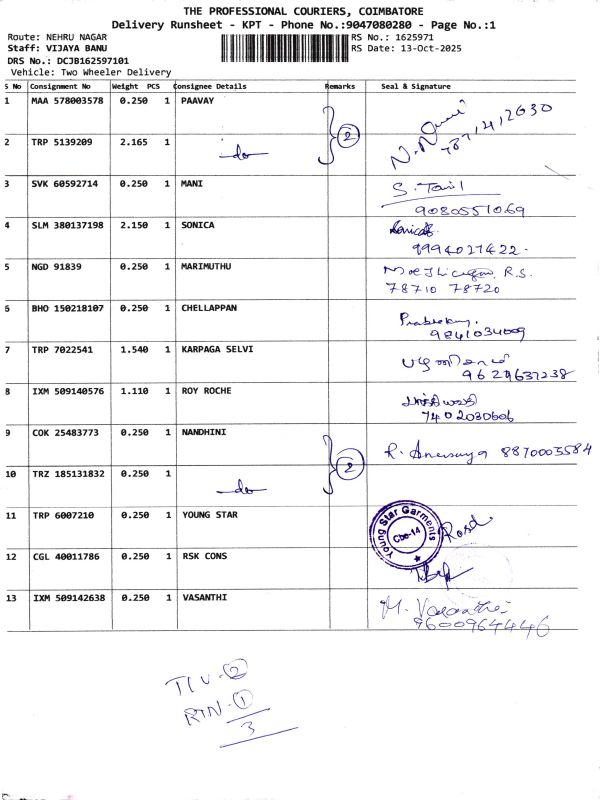 THE PROFESSIONAL COURIERS, COIMBATORE
Delivery Runsheet - KPT - Phone No.:9047080280 - Page No.:1
Route: NEHRU NAGAR RS No.: 1625971
Staff: VIJAYA BANU RS Date: 13-Oct-2025
DRS No.: DCJB162597101
Vehicle: Two Wheeler Delivery
S No Consignment No Weight PCS Consignee Details Remarks Seal & Signature
1 MAA 578003578 0.250 1 PAAVAY
2 TRP 5139209 2.165 1 -do- 2
3 SVK 60592714 0.250 1 MANI S. Tamil
9080551069
4 SLM 380137198 2.150 1 SONICA Sonica
9994027422
5 NGD 91839 0.250 1 MARIMUTHU R.S.
78710 78720
6 BHO 150218107 0.250 1 CHELLAPPAN
9841034009
7 TRP 7022541 1.540 1 KARPAGA SELVI
9629637238
8 IXM 509140576 1.110 1 ROY ROCHE
7402030606
9 COK 25483773 0.250 1 NANDHINI R. Anersuya 8870003584
10 TRZ 185131832 0.250 1 -do- 2
11 TRP 6007210 0.250 1 YOUNG STAR Young Star Garments Cbe-14
12 CGL 40011786 0.250 1 RSK CONS
13 IXM 509142638 0.250 1 VASANTHI M. Vasanthi
9600964446
2
RTN - 1
3